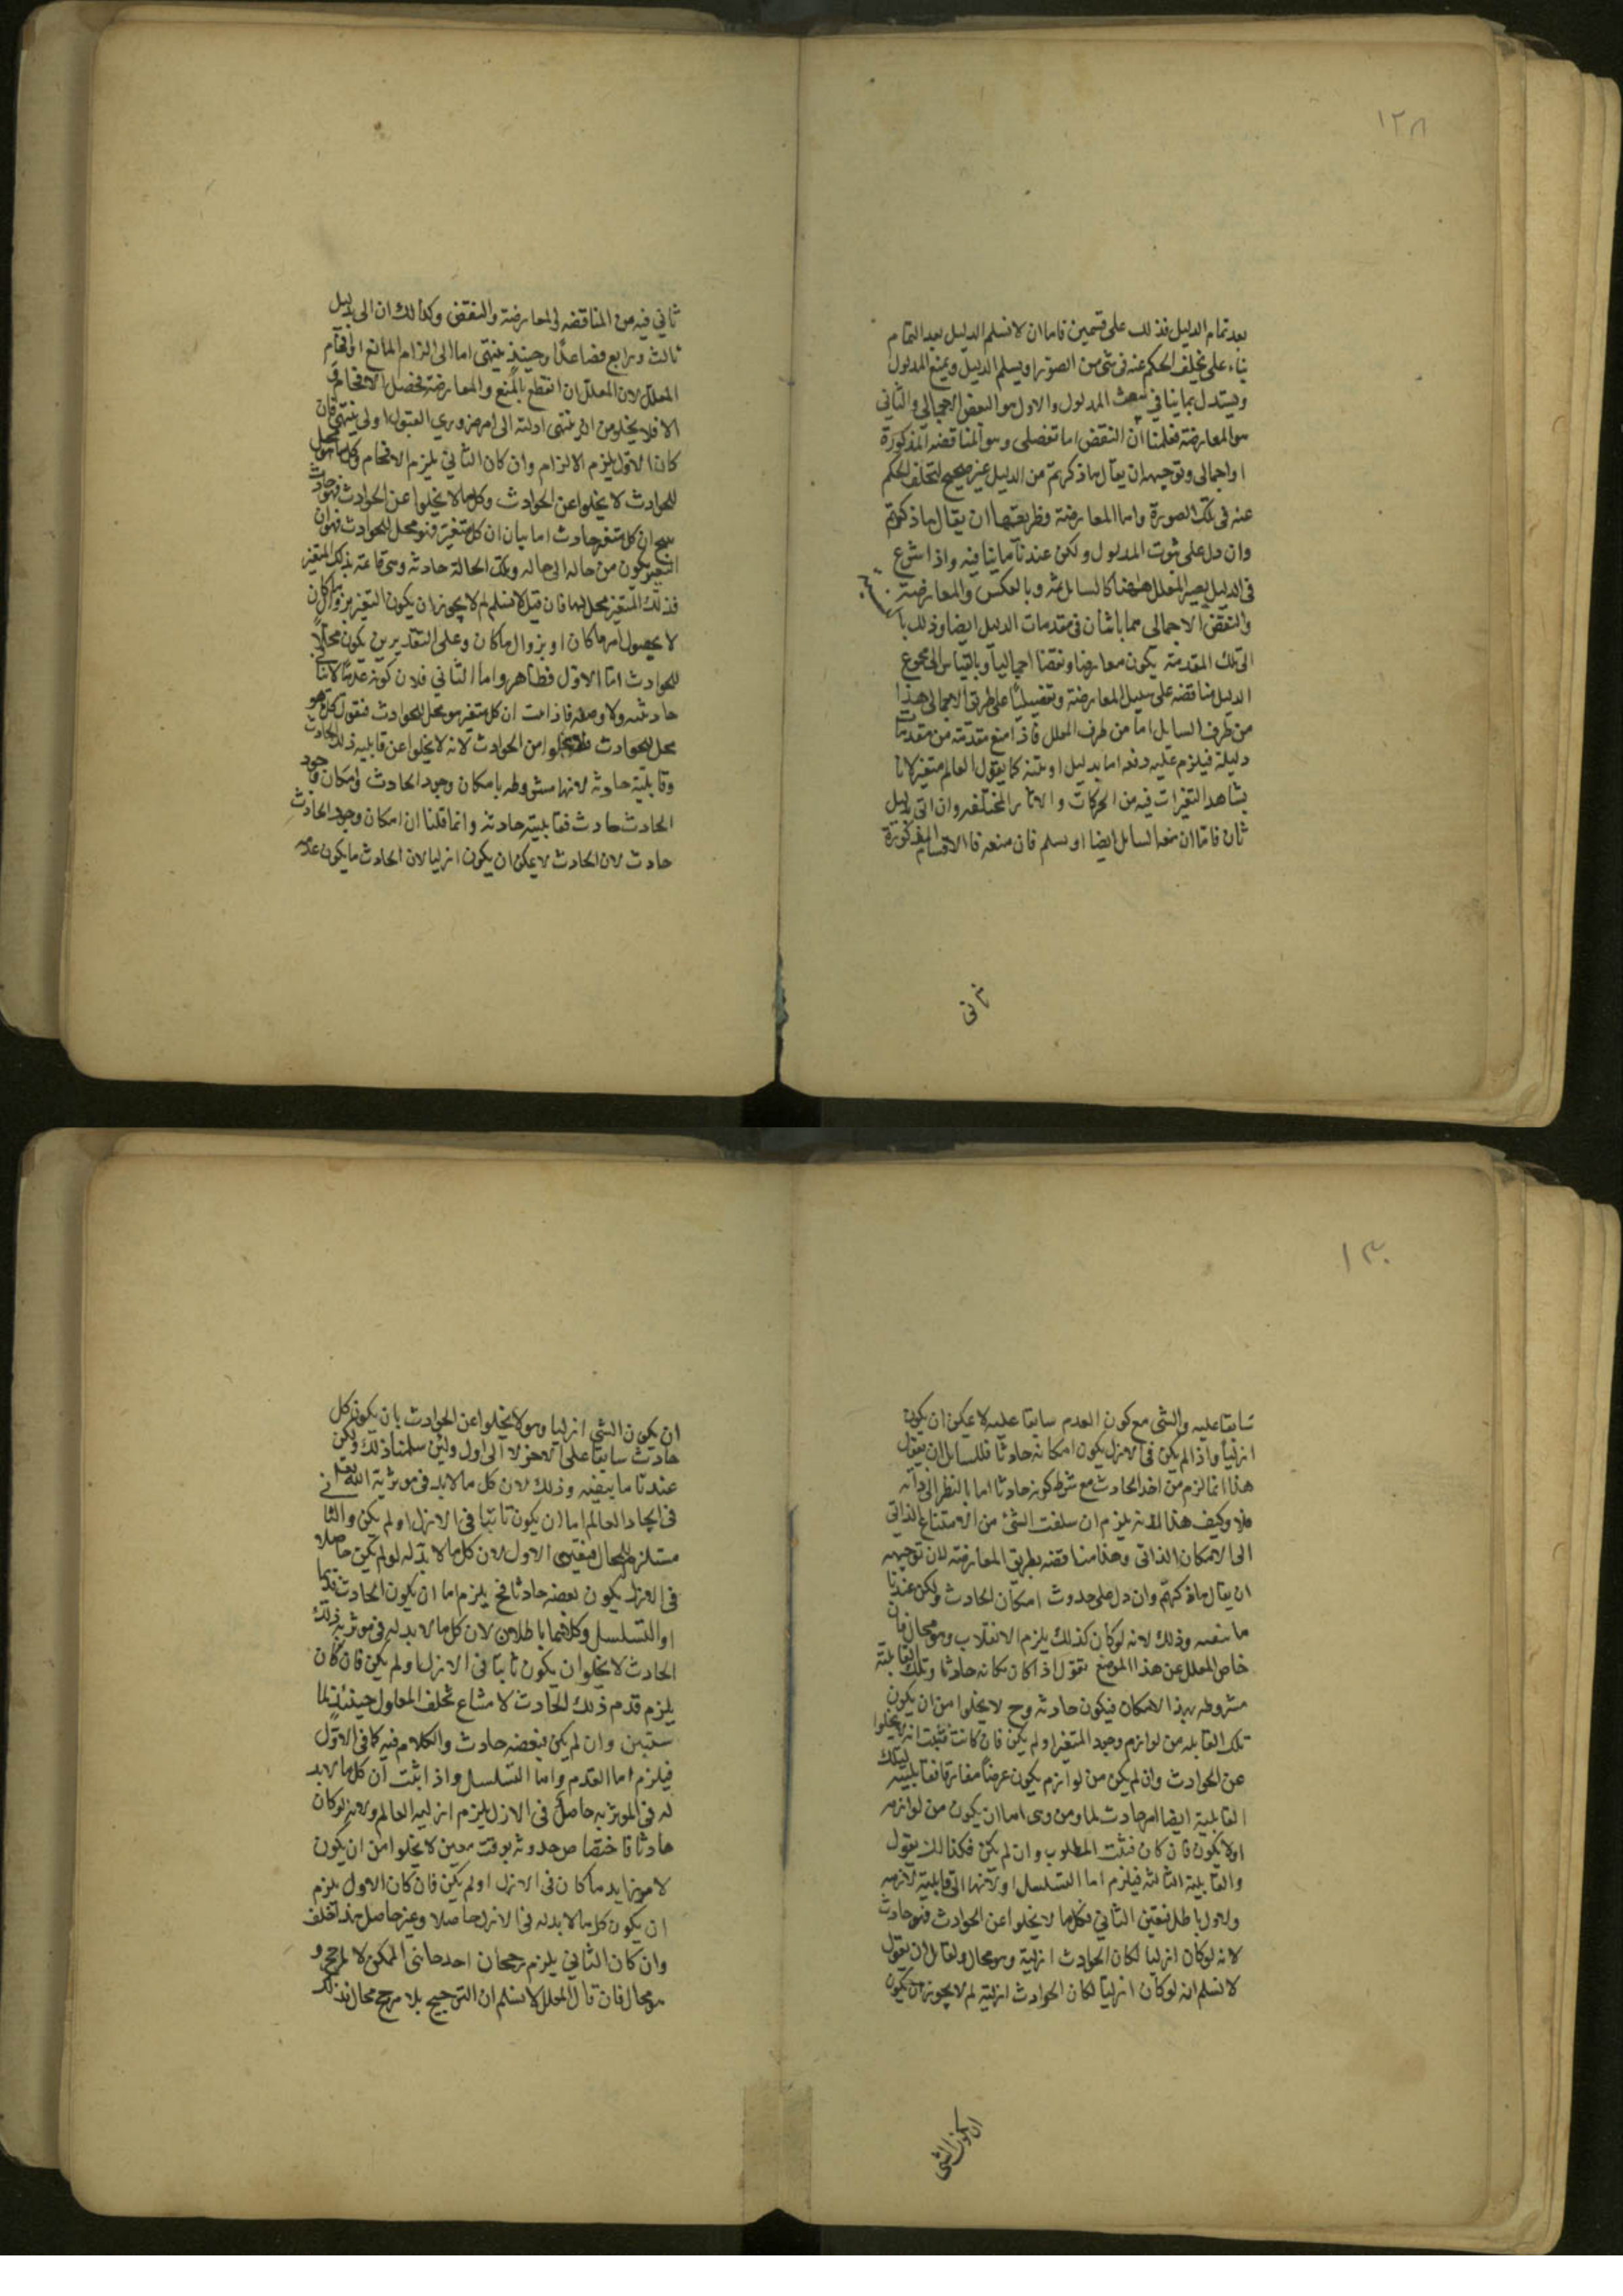 ١٢٨
بعد تمام الدليل فذلك على قسمين فاما ان لا نسلم الدليل بعد التمام
بناء على تخلف الحكم عنه فى شئ من الصور او يسلم الدليل ويمنع المدلول
ويستدل بما ينافى ثبوت المدلول والاول هو النقض الاجمالى والثانى
هو المعارضة فعلمنا ان النقض اما تفصلى وهو المناقضة المذكورة
او اجمالى وتوجيهه ان يقال ما ذكرتم من الدليل غير صحيح لتخلف الحكم
عنه فى تلك الصورة واما المعارضة وطريقتها ان يقال ما ذكرتم
وان دل على ثبوت المدلول ولكن عندنا ما ينافيه واذا شرع
فى الدليل يصير المعلل ههنا كالسائل ثمه وبالعكس والمعارضة
والنقض الاجمالى مما ياتيان فى مقدمات الدليل ايضا وذلك با
الى تلك المقدمة يكون معارضا ونقضا اجماليا وبالقياس الى مجموع
الدليل مناقضه على سبيل المعارضة وتفصيليا على طريق الاجمالى هذا
من طرف السايل اما من طرف المعلل فاذا منع مقدمة من مقدمات
دليلة فيلزم عليه دفعه اما بدليل او بتنبه كما يقول العالم متغير لانا
نشاهد التغيرات فيه من الحركات والاثار المختلفه وان اتى بدليل
ثان فاما ان منعه السايل ايضا او يسلم فان منعه فالاقسام المذكورة
ثانى
ثانى فيه من المناقضه والمعارضة والنقض وكذلك ان اتى بدليل
ثالث ورابع فصاعدا وحينئذ ينتهى اما الى الزام المانع او افحام
المعلل لان المعلل ان انقطع بالمنع والمعارضة فحصل الافحام و
الا فلا يخلو من ان ينتهى ادلته الى امر ضرورى القبول او لم ينتهى فان
كان الاول يلزم الالزام وان كان الثانى يلزم الافحام وكل ما هو محل
للحوادث لا يخلوا عن الحوادث وكل ما لا يخلوا عن الحوادث فهو حادث
ينتج ان كل متغير حادث اما بيان ان كل متغير فهو محل للحوادث فهو ان
التغير يكون من حاله الى حاله وتلك الحالة حادثه وهى قائمة بذلك المتغير
فذلك المتغير محل لها فان قيل لا نسلم لم لا يجوز ان يكون التغير بزوال ما كان
لا بحصول امر ما كان او بزوال ما كان وعلى التقديرين يكون محلا
للحوادث اما الاول فظاهر واما الثانى فلان كونه عدما
حادثه ولا فاذا ثبت ان كل متغير هو محل للحوادث فنقول كل ما هو
محل للحوادث لا يخلوا من الحوادث لانه لا يخلوا عن قابلية ذلك الحادث
وقابليته حادثه لانها مشروطه بامكان وجود الحادث وامكان وجود
الحادث حادث فقابليته حادثه وانما قلنا ان امكان وجود الحادث
حادث لان الحادث لا يمكن ان يكون ازليا لان الحادث ما يكون عدمه
١٣٠
سابقا عليه والشئ مع كون العدم سابقا عليه لا يمكن ان يكون
ازليا واذا لم يكن فى الازل يكون امكانه حادثا فللسائل ان يقول
هذا انما لزم من اخذ الحادث مع شرط كونه حادثا اما بالنظر الى ذاته
فلا وكيف هذا لانه يلزم ان سلفت الشئ من الامتناع الذاتى
الى الامكان الذاتى وهذا مناقضه بطريق المعارضة لان توجيهه
ان يقال ما ذكرتم وان دل على حدوث امكان الحادث ولكن عندنا
ما ينفيه وذلك لانه لو كان كذلك يلزم الانقلاب وهو محال فان
خاض المعلل عن هذا الموضع نقول اذا كان مكانه حادثا وتلك القابلية
مشروطه بهذا الامكان فيكون حادثه وح لا يخلوا من ان يكون
تلك القابله من لوازم وجود المتغير او لم يكن فان كانت فثبت انه لا يخلوا
عن الحوادث وان لم يكن من لوازم يكون عرضا مفارقا فقابلية لتلك
القابلية ايضا امر حادث لما ومن وهى اما ان يكون من لوازمه
او لا يكون فان كان فثبت المطلوب وان لم يكن فكذالك يقول
والقابلية الثالثه فيلزم اما التسلسل او لانتها الى قابلية لازمه
والاول باطل فتعين الثانى فكل ما لا يخلوا عن الحوادث فهو حادث
لانه لو كان ازليا لكان الحوادث ازلية وهو محال ولقائل ان يقول
لا نسلم انه لو كان ازليا لكان الحوادث ازلية لم لا يجوز ان يكون
ان يكون الشى
ان يكون الشى ازليا وهو لا يخلوا عن الحوادث بان يكون كل
حادث سابقا على الاخر لا الى اول ولئن سلمنا ذلك ولكن
عندنا ما ينفيه وذلك لان كل ما لابد فى موثرية الله تعالى
فى ايجاد العالم اما ان يكون ثابتا فى الازل او لم يكن والثانى
مستلزم للمحال فتعين الاول لان كل ما لابد له لو لم يكن حاصلا
فى الازل يكون بعضه حادثا فح يلزم اما ان يكون الحادث قديما
او التسلسل وكلاهما باطلان لان كل ما لابد له فى موثرية ذلك
الحادث لا يخلو ان يكون ثابتا فى الازل او لم يكن فان كان
يلزم قدم ذلك الحادث لامتناع تخلف المعلول حينئذ لما
سنبين وان لم يكن فبعضه حادث والكلام فيه كما فى الاول
فيلزم اما القدم واما التسلسل واذا ثبت ان كل ما لابد
له فى الموثريه حاصل فى الازل يلزم ازليه العالم ولانه لو كان
حادثا فاختصاص حدوثه بوقت معين لا يخلوا من ان يكون
لامر زايد ما كان فى الازل او لم يكن فان كان الاول يلزم
ان يكون كل ما لابد له فى الازل حاصلا وغير حاصل هذا خلف
وان كان الثانى يلزم رجحان احد جانبى الممكن لا لمرجح و
هو محال فان قال المعلل لا نسلم ان الترجيح بلا مرجح محال فذلك